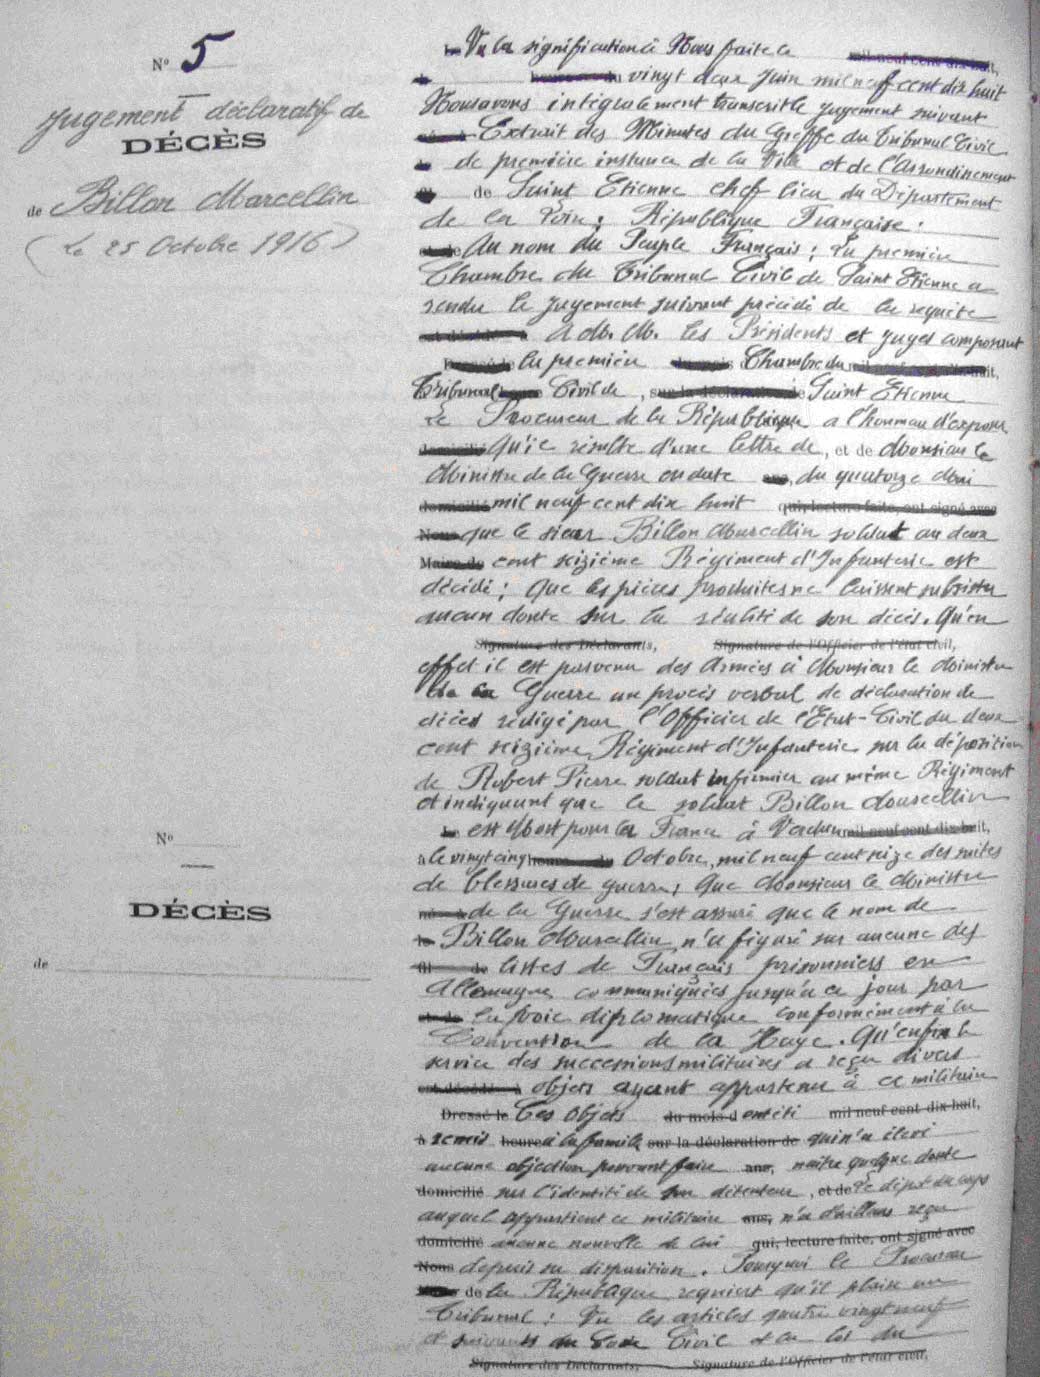 N° 5
Jugement déclaratif de
DÉCÈS
de Billon Marcellin
(Le 25 Octobre 1916)
Vu la signification à Nous faite le mil neuf cent dix-huit,
heures du vingt deux Juin mil neuf cent dix huit
Nous avons intégralement transcrit le jugement suivant
Extrait des Minutes du Greffe du Tribunal Civil
de première instance de la Ville et de l'Arrondissement
de Saint Etienne chef lieu du Département
de la Loire ; République Française :
et de Au nom du Peuple Français ; La première
Chambre du Tribunal Civil de Saint Etienne a
rendu le jugement suivant précédé de la requête
est décédé à A M. M. les Présidents et Juges composant
Dressé le la première du mois Chambre du mil neuf cent dix-huit,
Tribunal heure Civil de , sur la déclaration de Saint Etienne
Le Procureur de la République a l'honneur d'exposer
domicilié Qu'il résulte d'une lettre de , et de Monsieur le
Ministre de la Guerre en date ans, du quatorze Mai
domicilié mil neuf cent dix huit qui, lecture faite, ont signé avec
Nous que le sieur Billon Marcellin soldat au deux
Maire de cent seizième Régiment d'Infanterie est
décédé ; Que les pièces produites ne laissent subsister
aucun doute sur la réalité de son décès. Qu'en
Signature des Déclarants, Signature de l'Officier de l'état civil,
effet il est parvenu des Armées à Monsieur le Ministre
de la Guerre un procès verbal de déclaration de
décès rédigé par l'Officier de l'Etat-Civil du deux
cent seizième Régiment d'Infanterie sur la déposition
de Robert Pierre soldat infirmier au même Régiment
et indiquant que le soldat Billon Marcellin
Le est Mort pour la France à Verdun mil neuf cent dix-huit,
à le vingt cinq heures du Octobre, mil neuf cent seize des suites
de blessures de guerre ; Que Monsieur le Ministre
né à de la Guerre s'est assuré que le nom de
le Billon Marcellin n'a figuré sur aucune des
fil de listes de Français prisonniers en
Allemagne communiquées jusqu'à ce jour par
et de la voie diplomatique conformément à la
Convention de la Haye. Qu'enfin le
service des successions militaires a reçu divers
est décédé à objets ayant appartenu à ce militaire
Dressé le Ces objets du mois d ont été mil neuf cent dix-huit,
à remis heure à la famille sur la déclaration de qui n'a élevé
aucune objection pouvant faire ans, naître quelque doute
domicilié sur l'identité de son détenteur , et de Le dépôt du corps
auquel appartient ce militaire ans, n'a d'ailleurs reçu
domicilié aucune nouvelle de lui qui, lecture faite, ont signé avec
Nous depuis sa disparition. Pourquoi le Procureur
de la République requiert qu'il plaise au
Tribunal : Vu les articles quatre vingt neuf
et suivants du Code Civil et la loi du
Signature des Déclarants, Signature de l'Officier de l'état civil,
N°
DÉCÈS
de